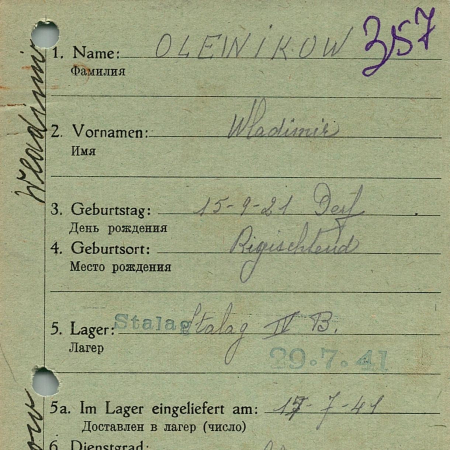 1. Name: OLEWIKOW 357
Фамилия
Wladimir
2. Vornamen: Wladimir
Имя
3. Geburtstag: 15-9-21 Dorf
День рождения
4. Geburtsort:
Место рождения
5. Lager: Stalag Stalag IV B.
Лагер
29.7.41
5a. Im Lager eingeliefert am: 17-7-41
Доставлен в лагер (число)
6. Dienstgrad: